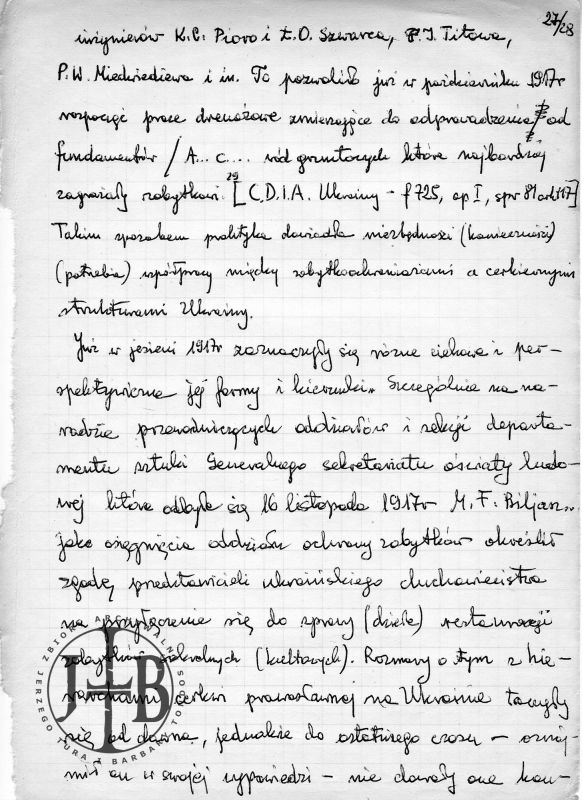 27/28
inżynierów K.C. Piovo i Ł.O. Szwarca, P.I. Titowa,
P.W. Miedwiediewa i in. To pozwoliło już w październiku 1917r
rozpocząć prace drenażowe zmierzające do odprowadzenia od
fundamentów / A... c.... wód gruntowych które najbardziej
zagrażały zabytkowi 29 [C.D.I.A. Ukrainy - f 725, op I, spr 81 ark 117]
Takim sposobem praktyka dowiodła niezbędności (konieczności)
(potrebia) współpracy między zabytkoochroniarzami a cerkiewnymi
strukturami Ukrainy.
Już w jesieni 1917r zaznaczyły się różne ciekawe i per-
spektywiczne jej formy i kierunki. Szczególnie na na-
radzie przewodniczących oddziałów i sekcji departa-
mentu sztuki Generalnego sekretariatu oświaty ludo-
wej która odbyła się 16 listopada 1917r M.F. Biljasz..
jako osiągnięcia oddziału ochrony zabytków określił
zgodę przedstawicieli ukraińskiego duchowieństwa
na przyłączenie się do sprawy (dzieła) restauracji
zabytków sakralnych (kultowych). Rozmowy o tym z hie-
rarchami cerkwi prawosławnej na Ukrainie toczyły
się od dawna, jednakże do ostatniego czasu - oznaj-
mił on w swojej wypowiedzi - nie dawały one kon-
ZBIORY ARCHIWALNE SOS
JERZEGO TURA I BARBARY TONDOS
J+B